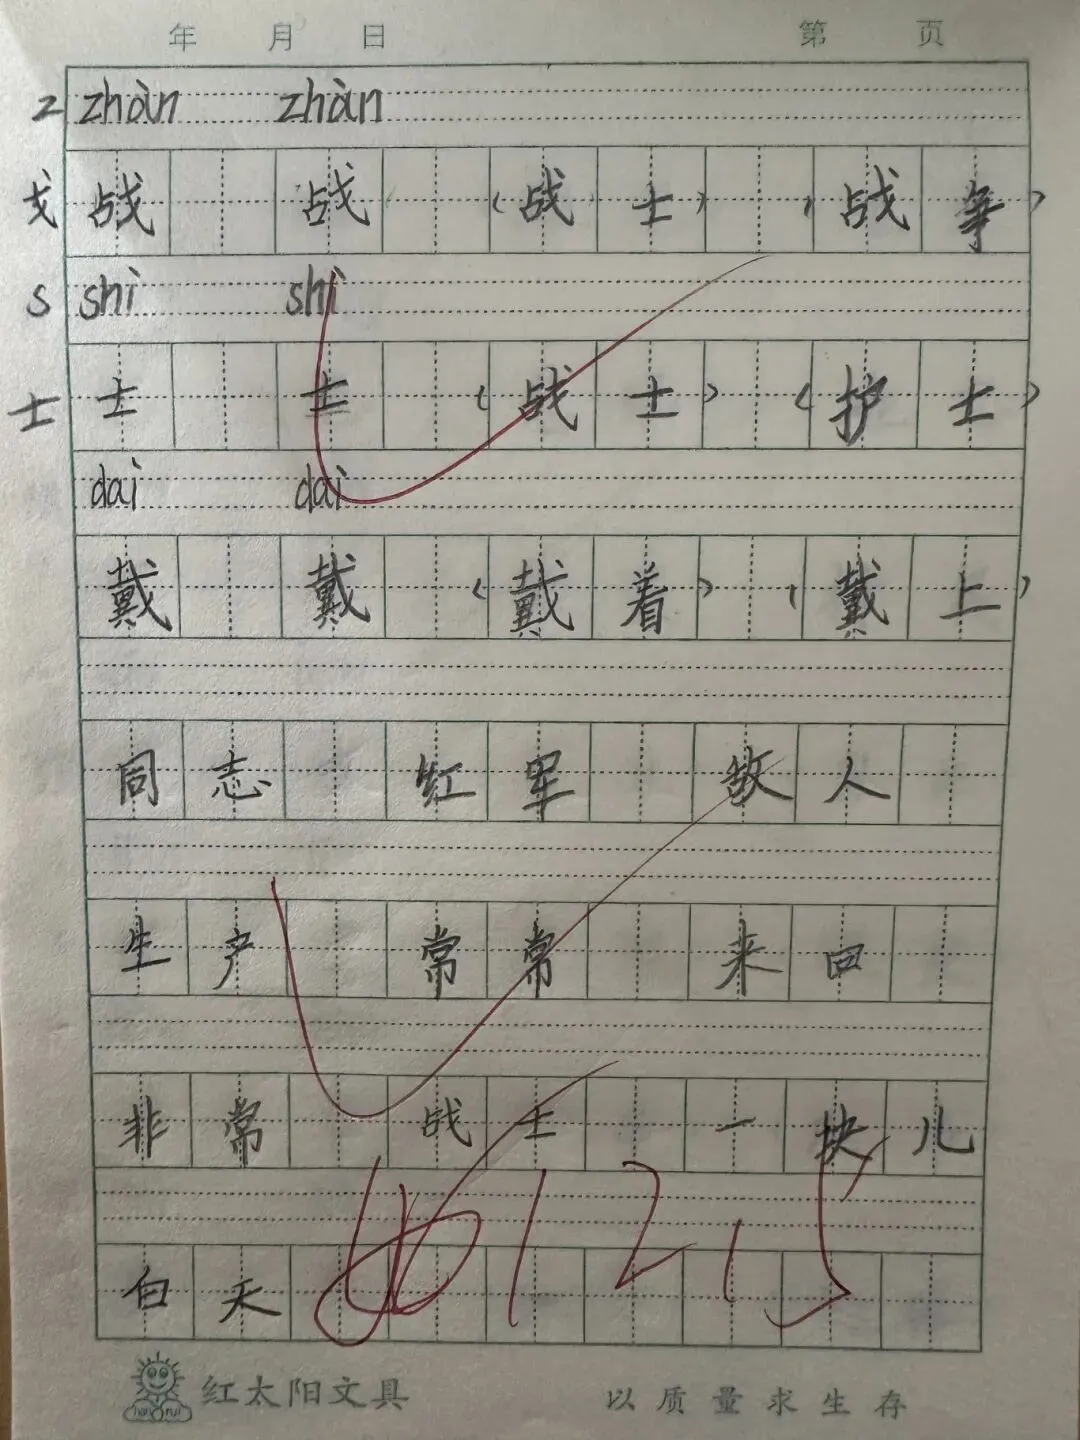 年 月 日 第 页
z zhàn zhàn
戈 战 战 (战士) (战争)
s shì shì
士 士 士 (战士) (护士)
dài dài
戴 戴 (戴着) (戴上)
同志 红军 敌人
生产 常常 来回
非常 战士 一块儿
白天
12.5
红太阳文具 以质量求生存